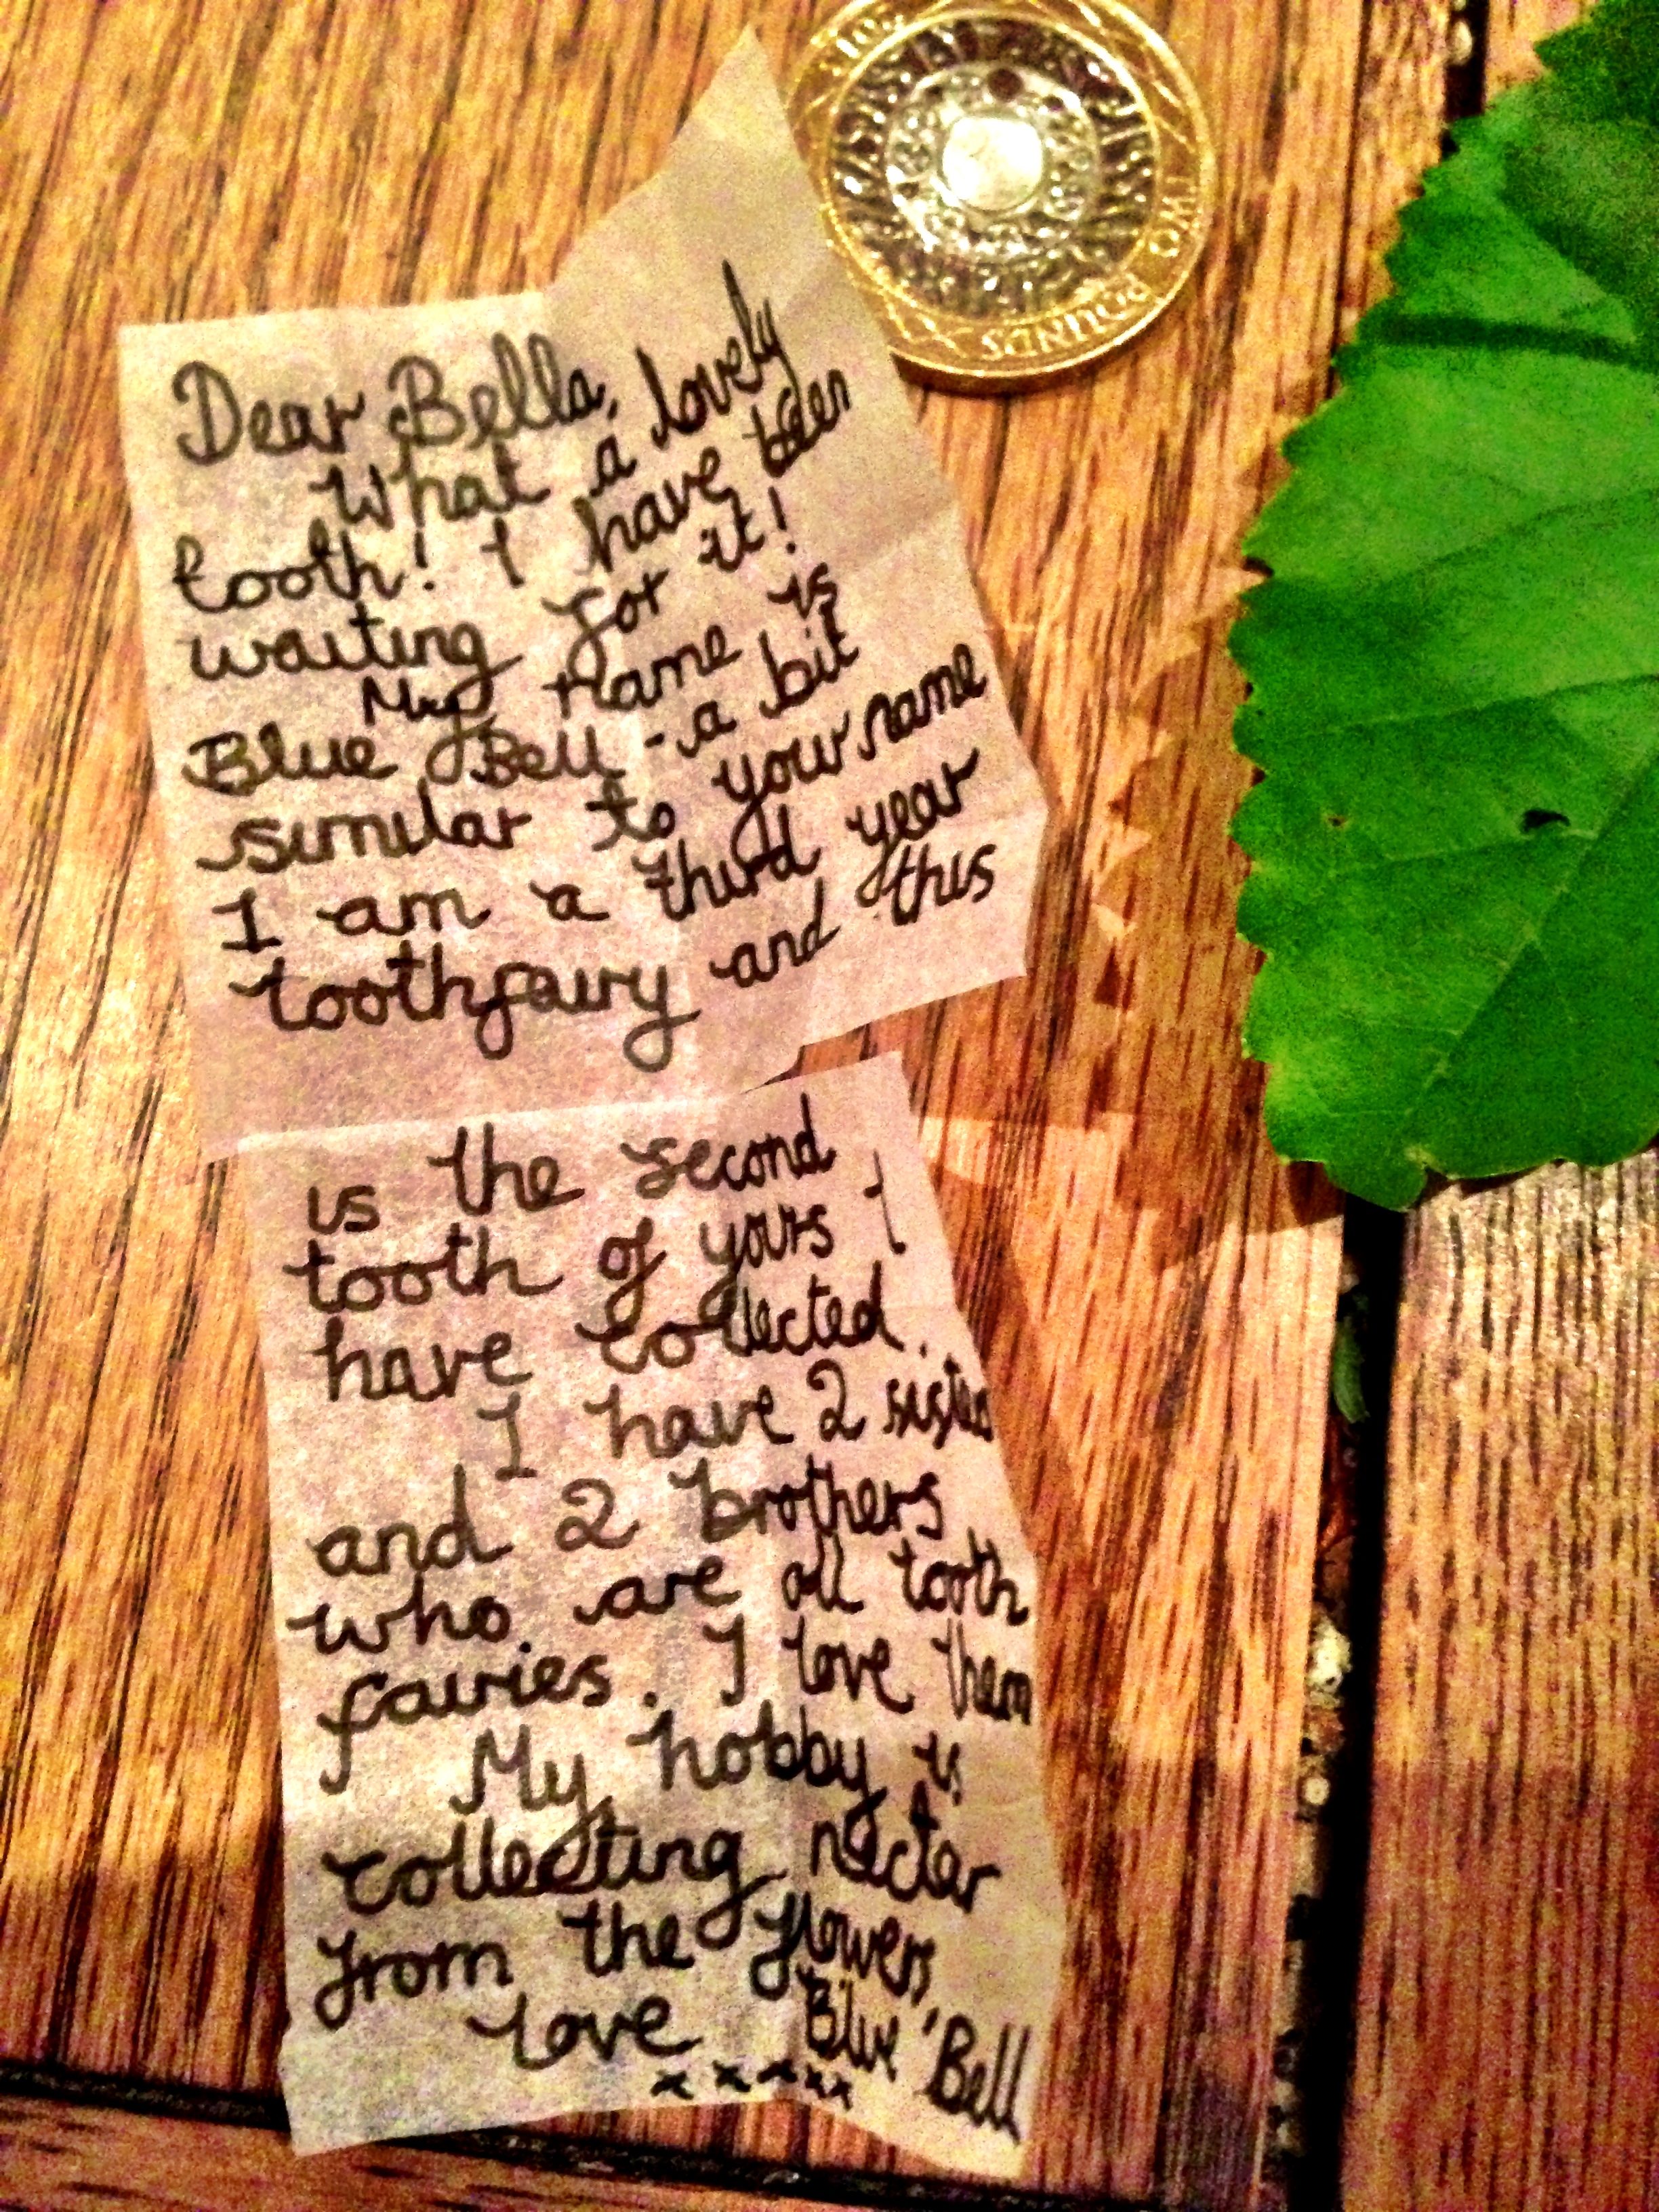 TWO POUNDS
Dear Bella,
What a lovely
tooth! I have been
waiting for it!
My name is
Blue Bell - a bit
similar to your name
I am a third year
toothfairy and this
is the second
tooth of yours I
have collected.
I have 2 sisters
and 2 brothers
who are all tooth
fairies. I love them
My hobby is
collecting nectar
from the flowers,
Love Blue Bell
xxxxx